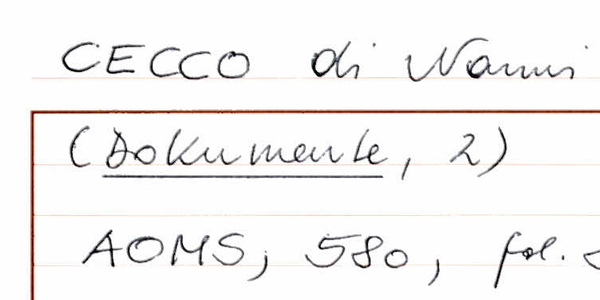 CECCO di Nanni
(Dokumente, 2)
AOMS, 580, fol.